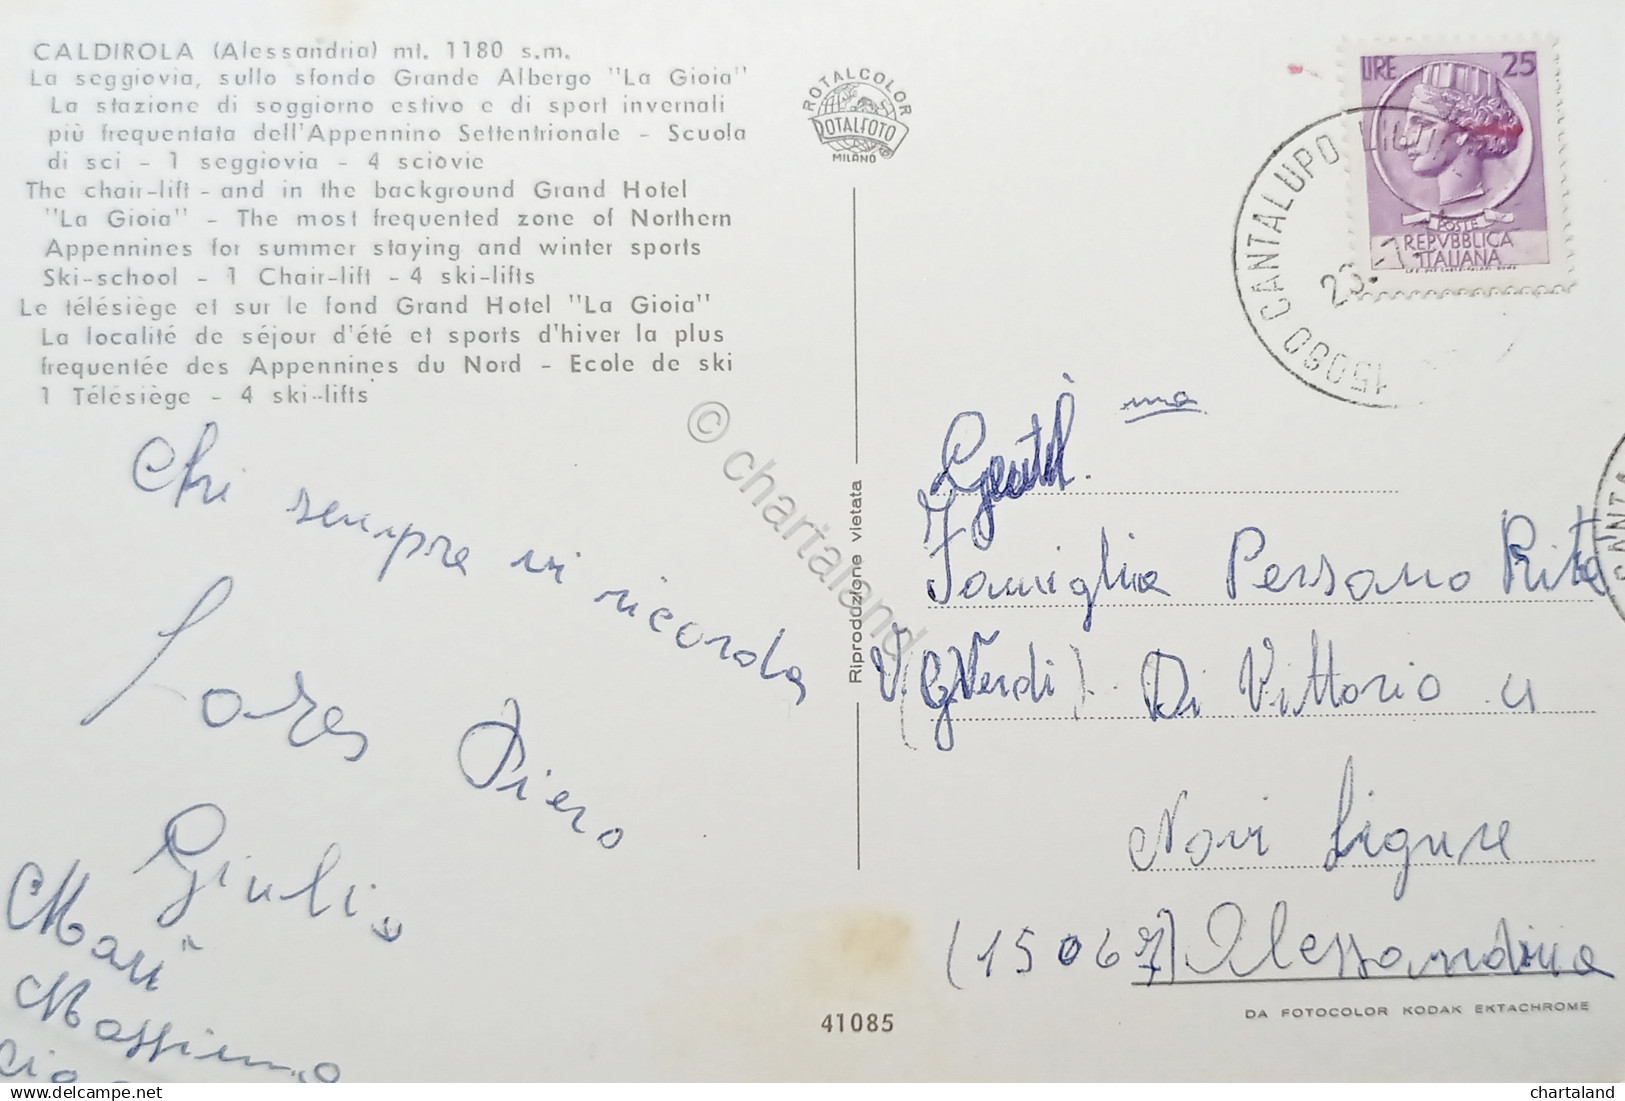 CALDIROLA (Alessandria) mt. 1180 s.m.
La seggiovia, sullo sfondo Grande Albergo "La Gioia"
La stazione di soggiorno estivo e di sport invernali
più frequentata dell'Appennino Settentrionale - Scuola
di sci - 1 seggiovia - 4 sciovie
The chair-lift - and in the background Grand Hotel
"La Gioia" - The most frequented zone of Northern
Appennines for summer staying and winter sports
Ski-school - 1 Chair-lift - 4 ski-lifts
Le télésiège et sur le fond Grand Hotel "La Gioia"
La localité de séjour d'été et sports d'hiver la plus
frequentée des Appennines du Nord - Ecole de ski
1 Télésiège - 4 ski-lifts
Chi sempre vi ricorda
Piero
Giulio
Massimo
ROTALCOLOR
ROTALFOTO
MILANO
Riproduzione vietata
© chartaland
41085
LIRE 25
POSTE
REPVBBLICA
ITALIANA
15060 CANTALUPO
Gentil.ma
Famiglia Persano Rita
V. (G. Verdi) Di Vittorio
Novi Ligure
(15067) Alessandria
DA FOTOCOLOR KODAK EKTACHROME
chartaland